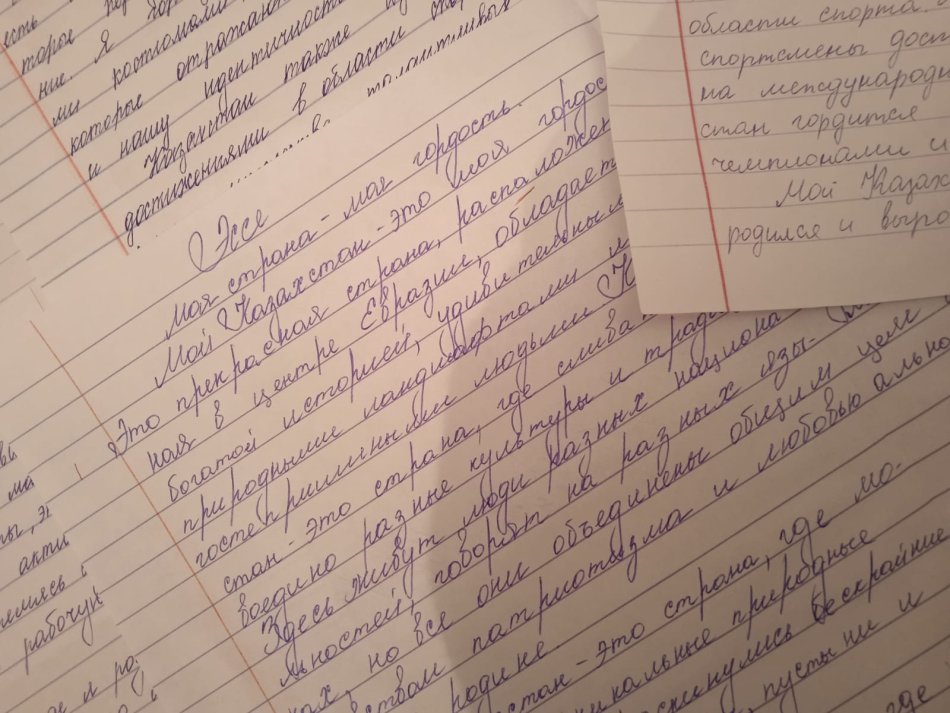 есть
торое
ние. Я
ми костюмами
которые отражают
и нашу идентичность
Казахстан также
достижениями в области
талантливых
Эссе
Моя страна - моя гордость.
Мой Казахстан - это моя гордос
Это прекрасная страна, расположен
ная в центре Евразии, обладает
богатой историей, удивительным
природными ландшафтами и
гостеприимными людьми
стан - это страна, где слива
воедино разные культуры и тради
Здесь живут люди разных национа
льностей, говорят на разных язы-
ках, но все они объединены общим
ством патриотизма и любовью
родине.
стан - это страна, где
кальные природные
скинулись бескрайние
пустыни и
где
области спорта.
спортсмены дост
на международн
стан гордится
чемпионами и
Мой Казах
родился и выро
ма
акти
рабочун